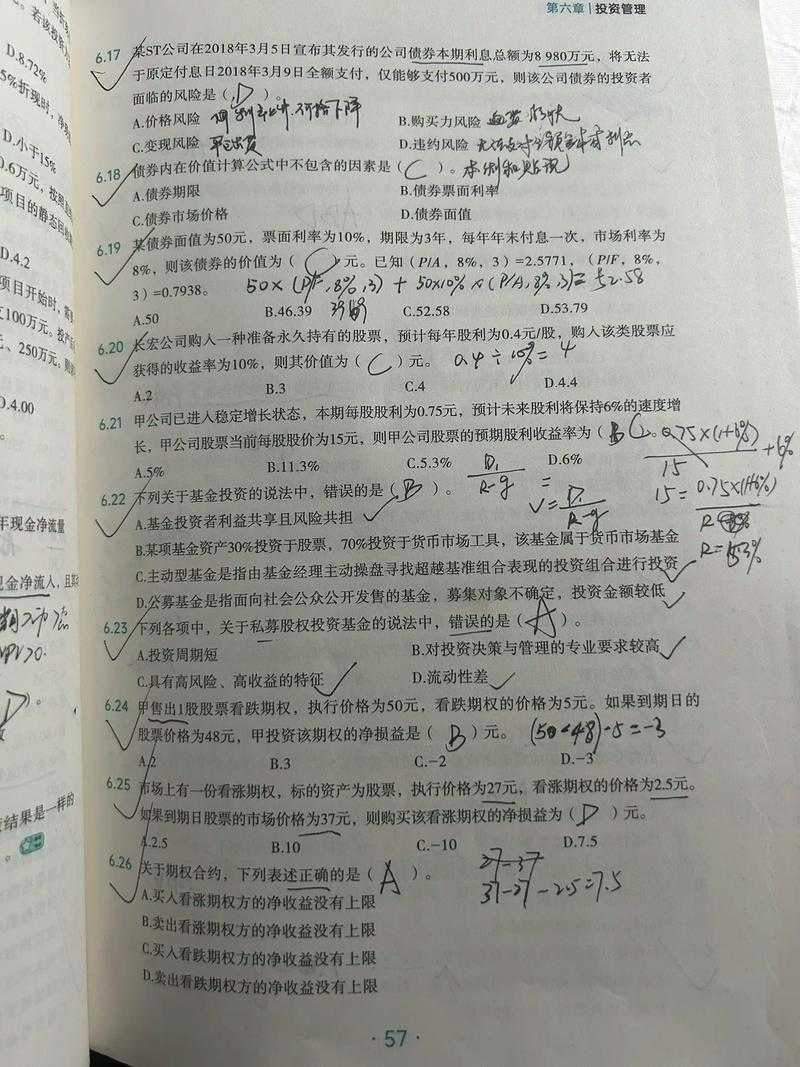 第六章 | 投资管理
6.17 某ST公司在2018年3月5日宣布其发行的公司债券本期利息总额为8 980万元，将无法
于原定付息日2018年3月9日全额支付，仅能够支付500万元，则该公司债券的投资者
面临的风险是（ D ）。
A.价格风险 B.购买力风险
C.变现风险 D.违约风险
6.18 债券内在价值计算公式中不包含的因素是（ C ）。
A.债券期限 B.债券票面利率
C.债券市场价格 D.债券面值
6.19 某债券面值为50元，票面利率为10%，期限为3年，每年年末付息一次，市场利率为
8%，则该债券的价值为（ C ）元。已知（P/A，8%，3）=2.5771，（P/F，8%，
3）=0.7938。 50×(P/F,8%,3) + 50×10%×(P/A,8%,3)= 52.58
A.50 B.46.39 C.52.58 D.53.79
6.20 长宏公司购入一种准备永久持有的股票，预计每年股利为0.4元/股，购入该类股票应
获得的收益率为10%，则其价值为（ C ）元。 0.4÷10%=4
A.2 B.3 C.4 D.4.4
6.21 甲公司已进入稳定增长状态，本期每股股利为0.75元，预计未来股利将保持6%的速度增
长，甲公司股票当前每股股价为15元，则甲公司股票的预期股利收益率为（ B C ）。 0.75×(1+6%)
15 +6%
A.5% B.11.3% C.5.3% D.6%
D1
R-g
V= D1
R-g
15= 0.75×(1+6%)
R
R=5.3%
6.22 下列关于基金投资的说法中，错误的是（ B ）。
A.基金投资者利益共享且风险共担
B.某项基金资产30%投资于股票，70%投资于货币市场工具，该基金属于货币市场基金
C.主动型基金是指由基金经理主动操盘寻找超越基准组合表现的投资组合进行投资
D.公募基金是指面向社会公众公开发售的基金，募集对象不确定，投资金额较低
6.23 下列各项中，关于私募股权投资基金的说法中，错误的是（ A ）。
A.投资周期短 B.对投资决策与管理的专业要求较高
C.具有高风险、高收益的特征 D.流动性差
6.24 甲售出1股股票看跌期权，执行价格为50元，看跌期权的价格为5元。如果到期日的
股票价格为48元，甲投资该期权的净损益是（ B ）元。 (50-48)-5=-3
A.2 B.3 C.−2 D.−3
6.25 市场上有一份看涨期权，标的资产为股票，执行价格为27元，看涨期权的价格为2.5元。
如果到期日股票的市场价格为37元，则购买该看涨期权的净损益为（ D ）元。
A.2.5 B.10 C.−10 D.7.5
27-37
37-27-2.5=7.5
6.26 关于期权合约，下列表述正确的是（ A ）。
A.买入看涨期权方的净收益没有上限
B.卖出看涨期权方的净收益没有上限
C.买入看跌期权方的净收益没有上限
D.卖出看跌期权方的净收益没有上限
· 57 ·
D.8.72%
5%折现时，净现
D.小于15%
D.4.2
D.4.00
结果是一样的